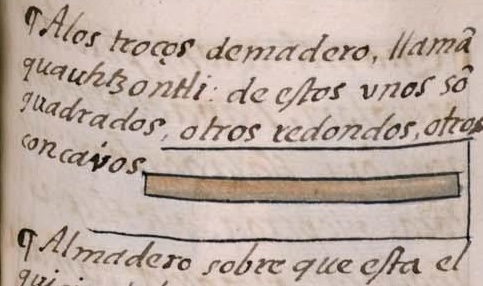 ¶ Alos troços demadero, llamã
quauhtzontli: de estos vnos sõ
quadrados, otros redondos, otros
concavos
¶ Almadero sobre que esta el